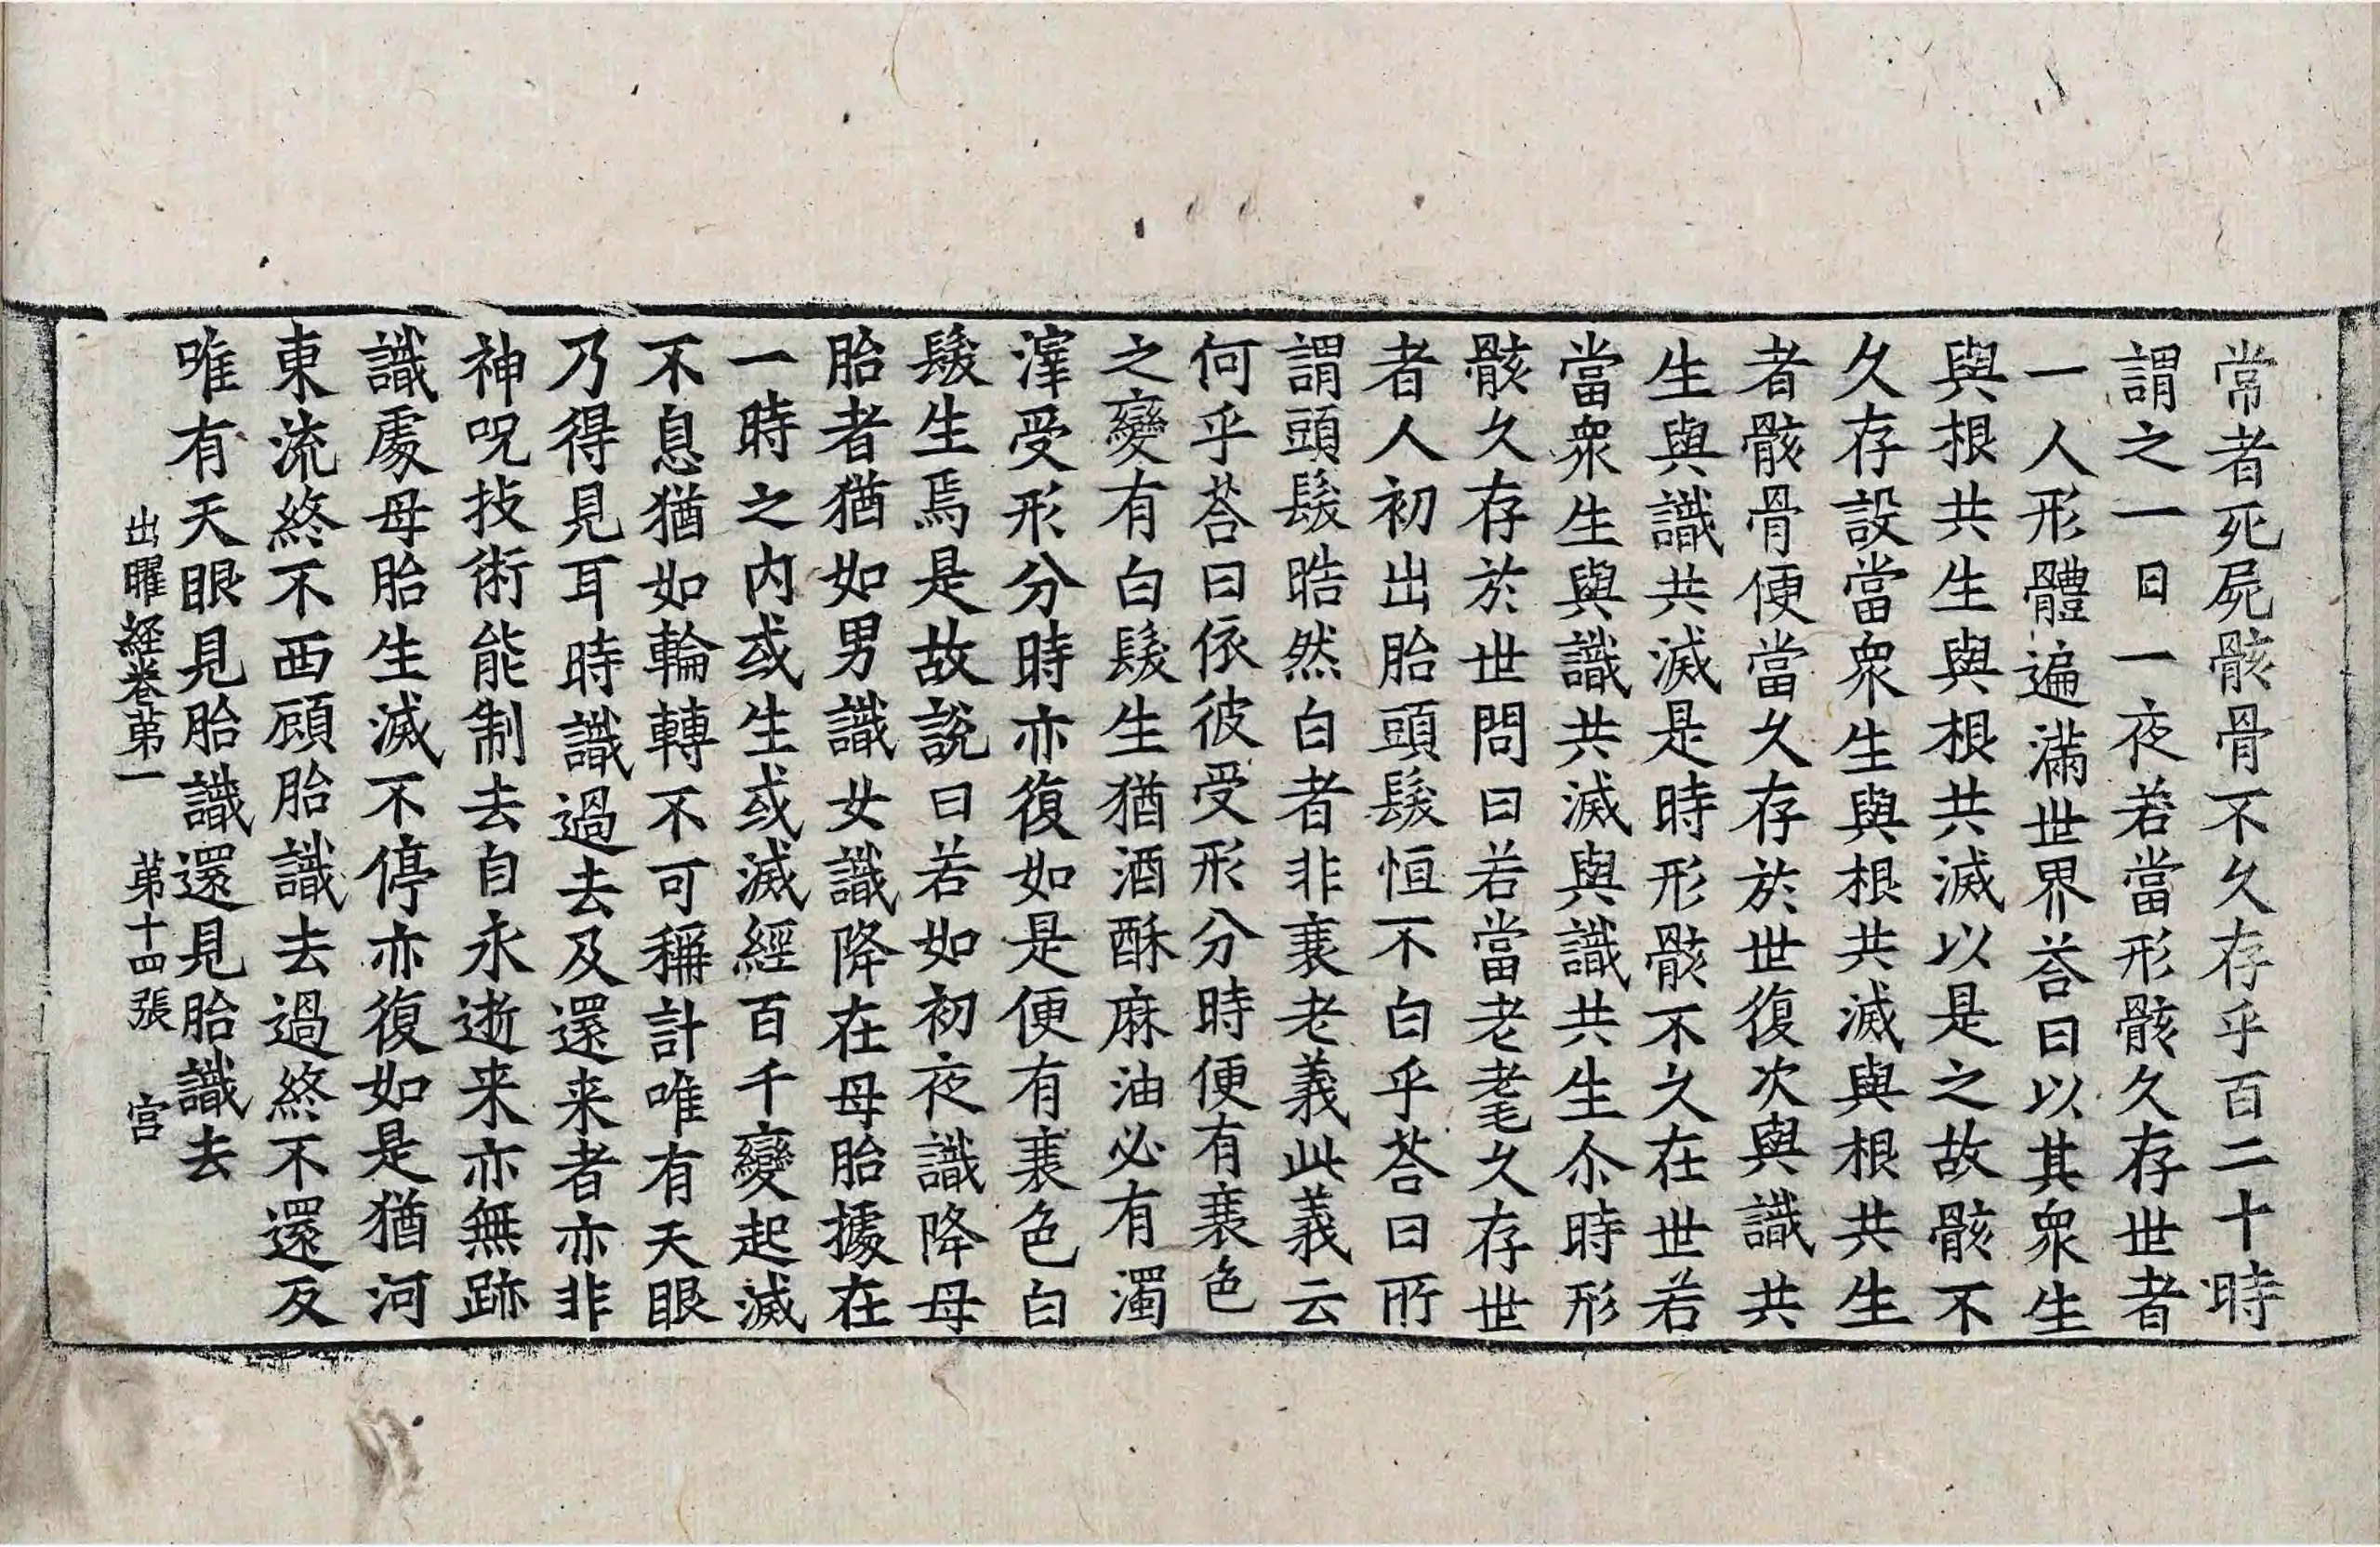 常者死屍骸骨不久存乎百二十時
謂之一日一夜若當形骸久存世者
一人形體遍滿世界荅曰以其衆生
與根共生與根共滅以是之故骸不
久存設當衆生與根共滅與根共生
者骸骨便當久存於世復次與識共
生與識共滅是時形骸不久在世若
當衆生與識共滅與識共生尒時形
骸久存於世問曰若當老耄久存世
者人初出胎頭髮恒不白乎荅曰所
謂頭髮晧然白者非衰老義此義云
何乎荅曰依彼受形分時便有衰色
之變有白髮生猶酒酥麻油必有濁
滓受形分時亦復如是便有衰色白
髮生焉是故說曰若如初夜識降母
胎者猶如男識女識降在母胎據在
一時之內或生或滅經百千變起滅
不息猶如輪轉不可稱計唯有天眼
乃得見耳時識過去及還来者亦非
神呪技術能制去自永逝来亦無跡
識處母胎生滅不停亦復如是猶河
東流終不西顧胎識去過終不還反
唯有天眼見胎識還見胎識去
出曜経卷苐一　苐十四張　宫